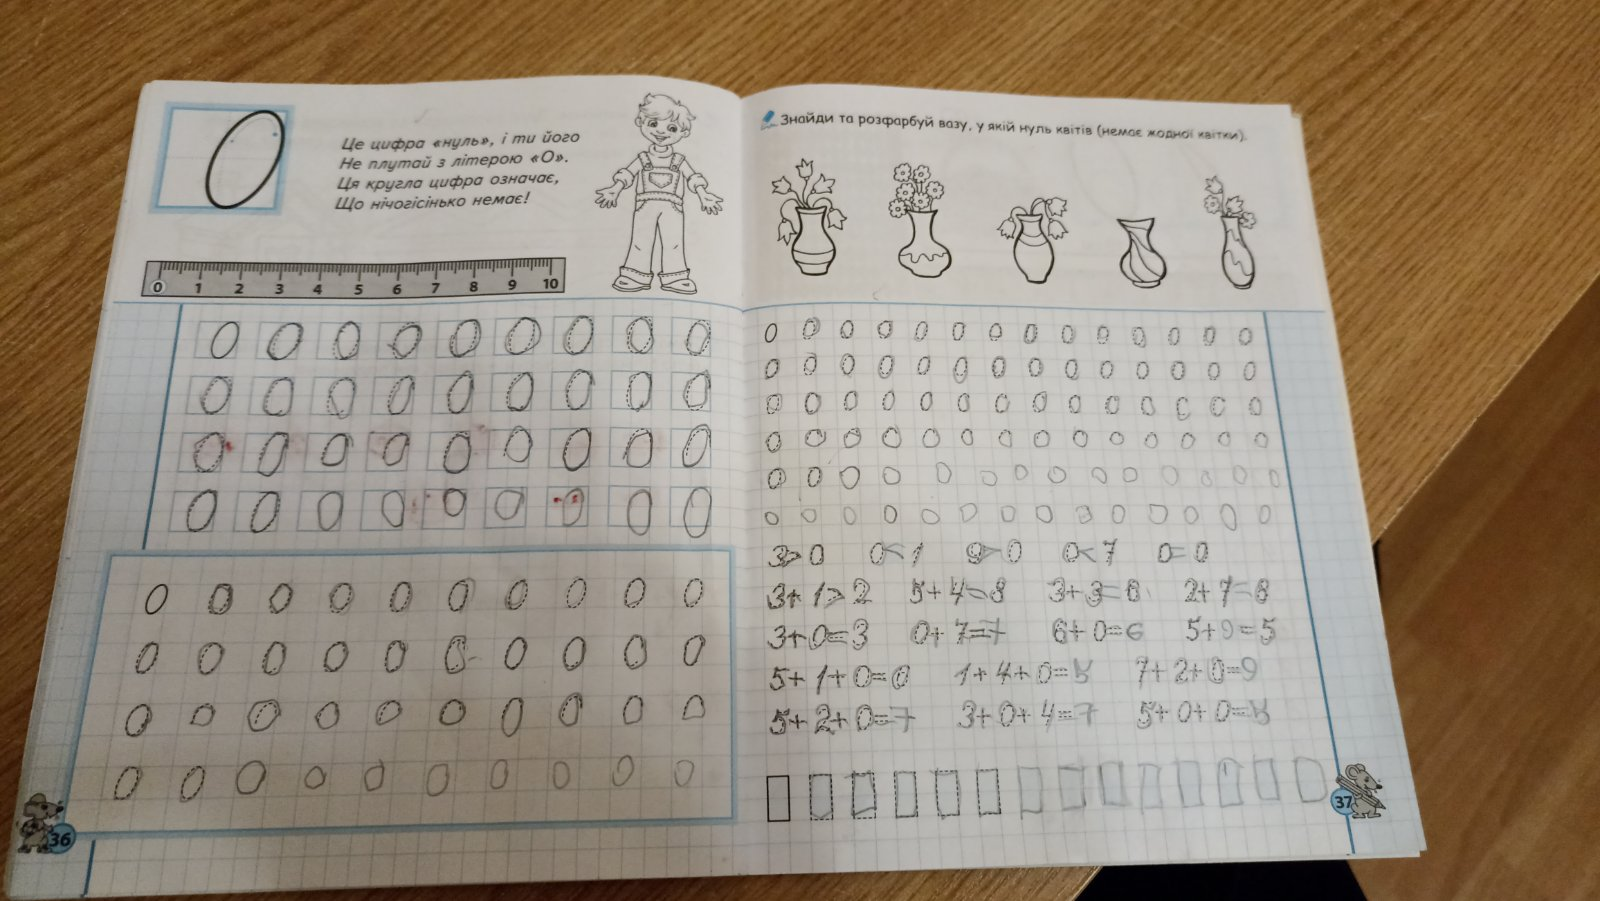 0
Це цифра «нуль», і ти його
Не плутай з літерою «О».
Ця кругла цифра означає,
Що нічогісінько немає!
0 1 2 3 4 5 6 7 8 9 10
0 0 0 0 0 0 0 0 0
0 0 0 0 0 0 0 0 0
0 0 0 0 0 0 0 0 0
0 0 0 0 0 0 0 0 0
0 0 0 0 0 0 0 0 0 0
0 0 0 0 0 0 0 0 0 0
0 0 0 0 0 0 0 0 0 0
0 0 0 0 0 0 0 0 0 0
36
Знайди та розфарбуй вазу, у якій нуль квітів (немає жодної квітки).
0 0 0 0 0 0 0 0 0 0 0 0 0 0
0 0 0 0 0 0 0 0 0 0 0 0 0 0
0 0 0 0 0 0 0 0 0 0 0 0 0 0
0 0 0 0 0 0 0 0 0 0 0 0 0 0
0 0 0 0 0 0 0 0 0 0 0 0 0 0
0 0 0 0 0 0 0 0 0 0 0 0 0 0
3>0 0<1 9>0 0<7 0=0
3+1>2 5+4 8 3+3=6 2+7 8
3+0=3 0+7=7 6+0=6 5+ =5
5+1+0=6 1+4+0=5 7+2+0=9
5+2+0=7 3+0+4=7 5+0+0=5
37